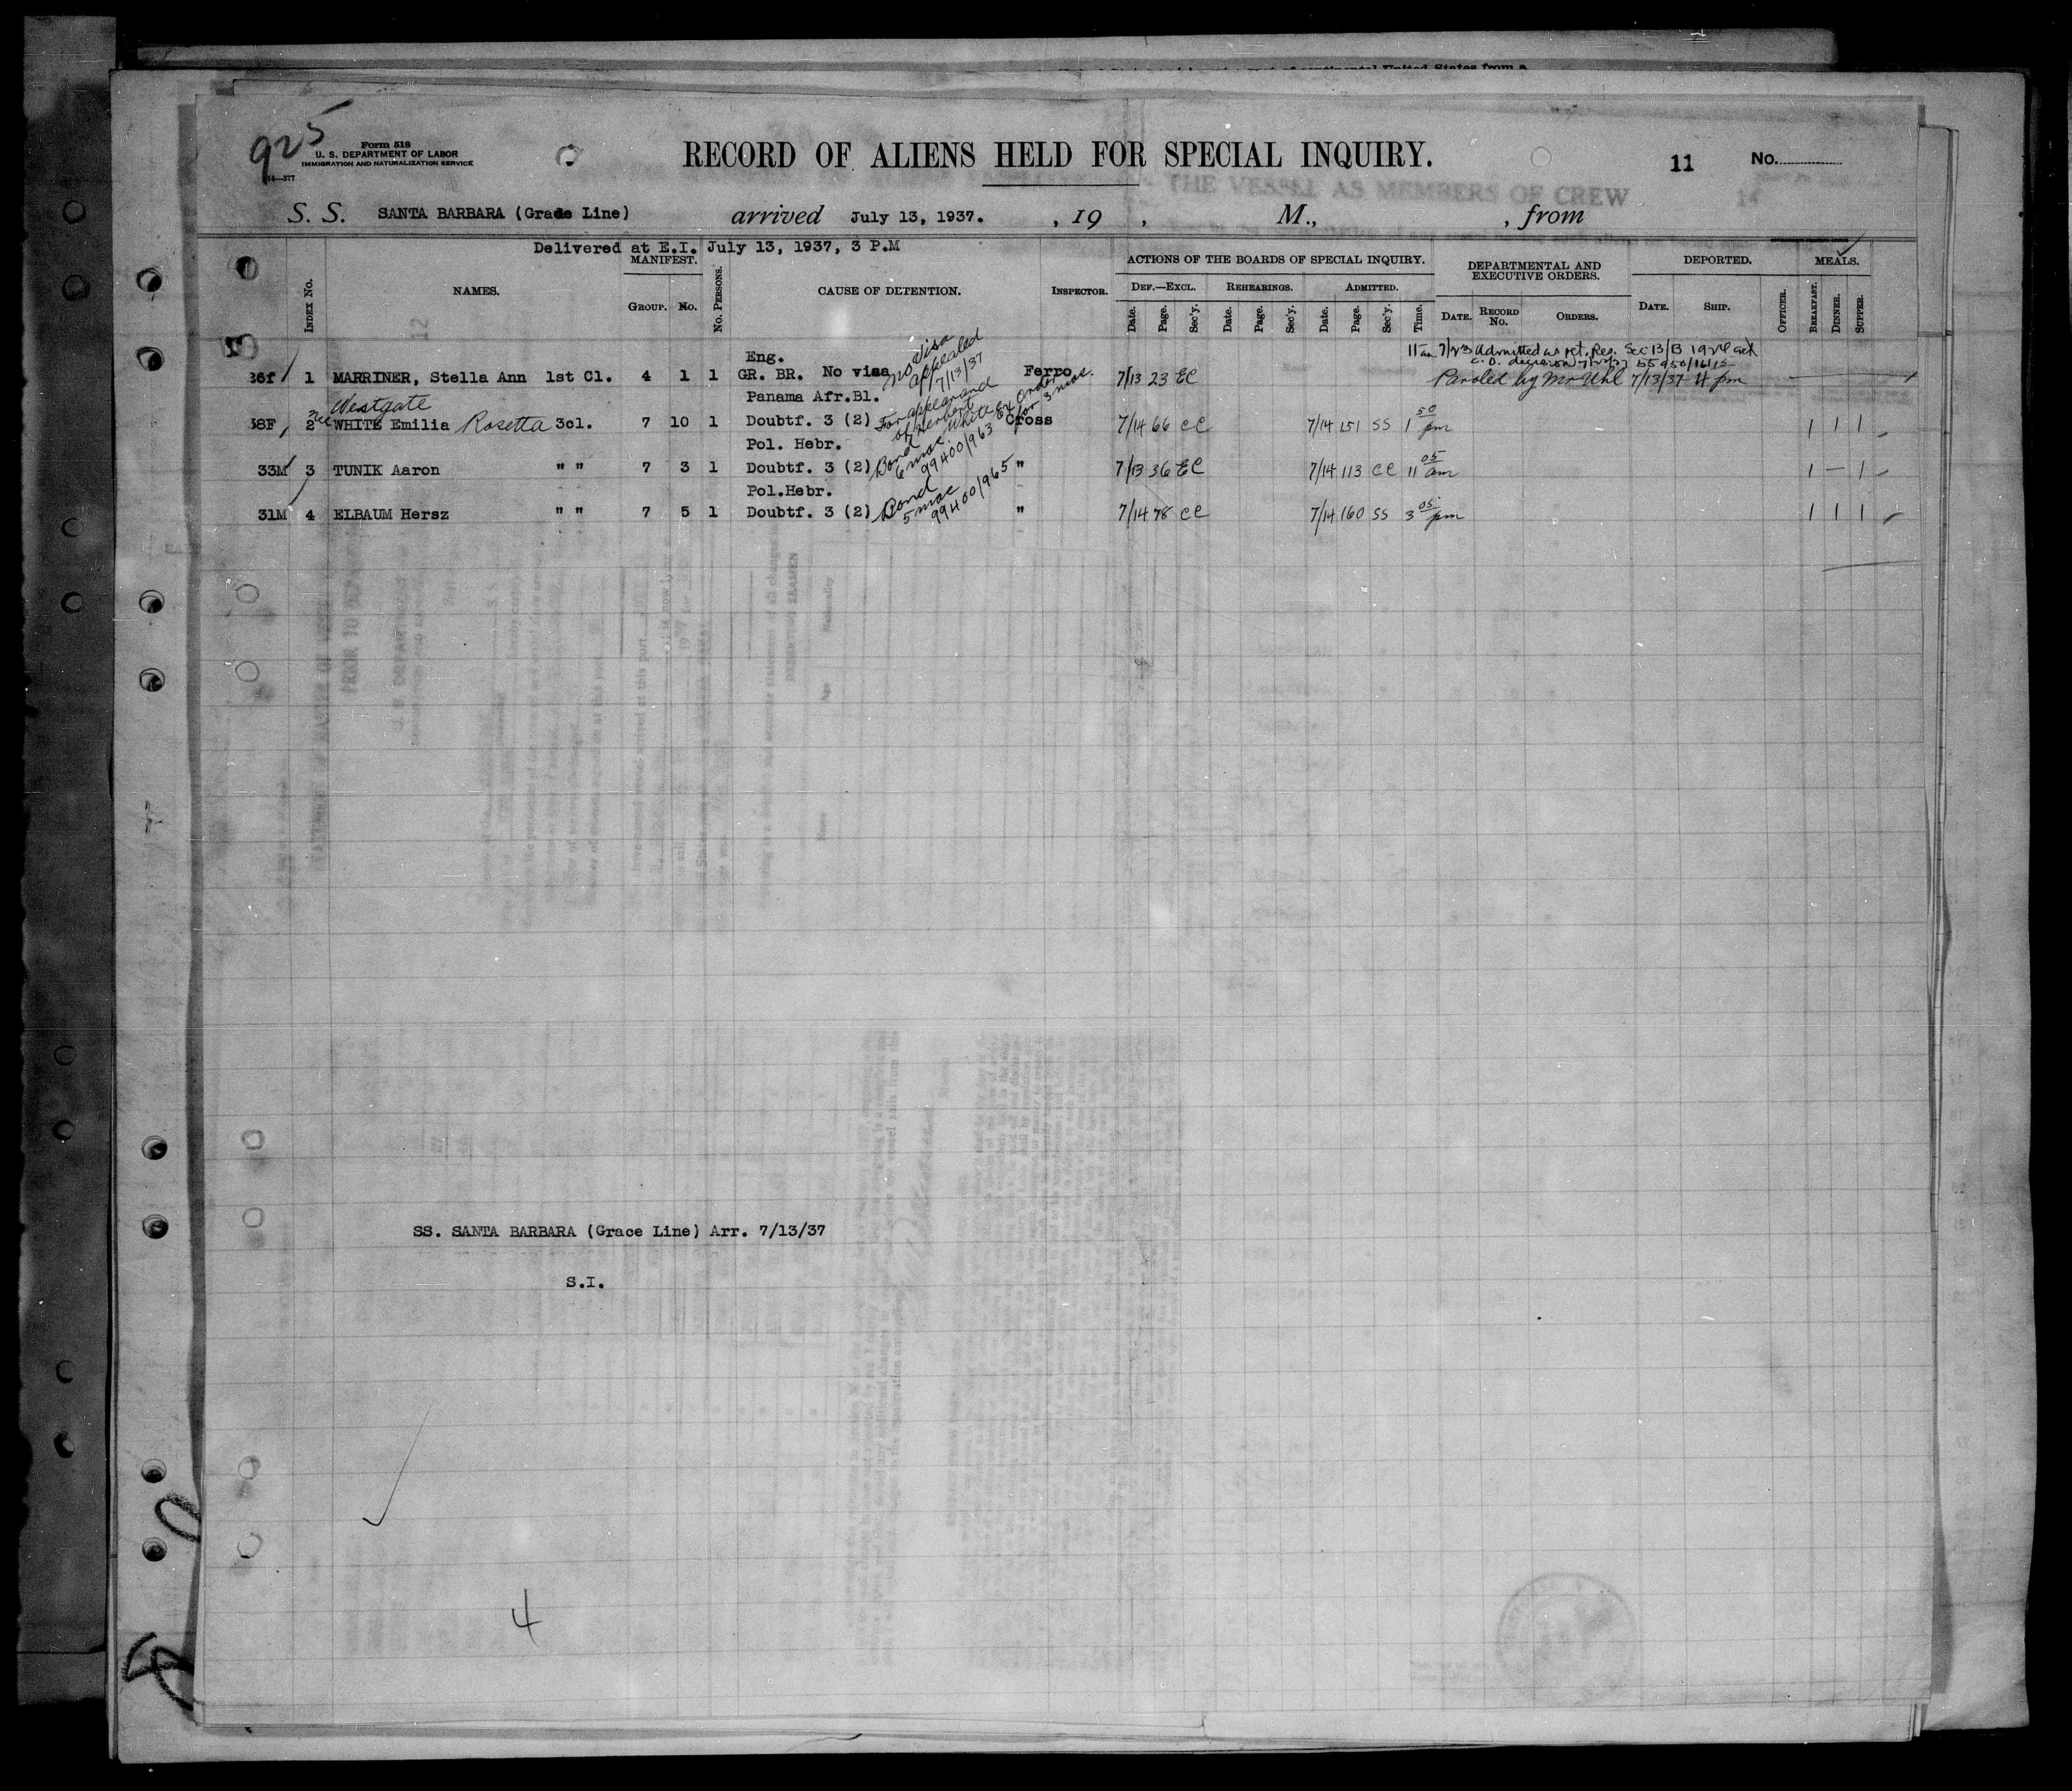 925
Form 518
U. S. DEPARTMENT OF LABOR
IMMIGRATION AND NATURALIZATION SERVICE
14—377
RECORD OF ALIENS HELD FOR SPECIAL INQUIRY.
11 No.
THE VESSEL AS MEMBERS OF CREW
14
S. S. SANTA BARBARA (Grade Line) arrived July 13, 1937. , 19 , M., , from
Delivered at E.I. July 13, 1937, 3 P.M
INDEX No. NAMES. MANIFEST. GROUP. No. No. PERSONS. CAUSE OF DETENTION. INSPECTOR.
ACTIONS OF THE BOARDS OF SPECIAL INQUIRY. DEPARTMENTAL AND EXECUTIVE ORDERS. DEPORTED. MEALS.
DEF.—EXCL. REHEARINGS. ADMITTED.
Date. Page. Sec'y. Date. Page. Sec'y. Date. Page. Sec'y. Time. DATE. RECORD No. ORDERS. DATE. SHIP. OFFICER. BREAKFAST. DINNER. SUPPER.
12
Eng. No Visa appealed 7/13/37 11 am 7/23 Admitted as ret. Res. Sec 13/B 1924 act
36f 1 MARRINER, Stella Ann 1st Cl. 4 1 1 GR. BR. No visa Ferro 7/13 23 EC Paroled by Mr Uhl 7/13/37 4 pm
Westgate Panama Afr.Bl. For appearance of Herbert White Ex Order for 3 mos.
38F 2 WHITE Emilia Rosetta 3cl. 7 10 1 Doubtf. 3 (2) Cross 7/14 66 CC 7/14 151 SS 1 50 pm 1 1 1
Pol. Hebr. Bond 6 mos. 99400/963
33M 3 TUNIK Aaron " " 7 3 1 Doubtf. 3 (2) " 7/13 36 EC 7/14 113 CC 11 05 am 1 — 1
Pol.Hebr. Bond 5 mos 99400/965
31M 4 ELBAUM Hersz " " 7 5 1 Doubtf. 3 (2) " 7/14 78 CC 7/14 160 SS 3 05 pm 1 1 1
SS. SANTA BARBARA (Grace Line) Arr. 7/13/37
S.I.
4